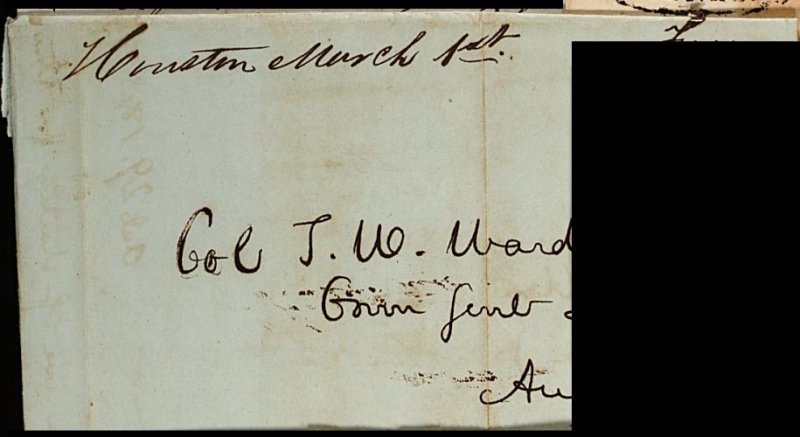 Houston March 1st.
Col T. W. Ward
Com Genl
Au